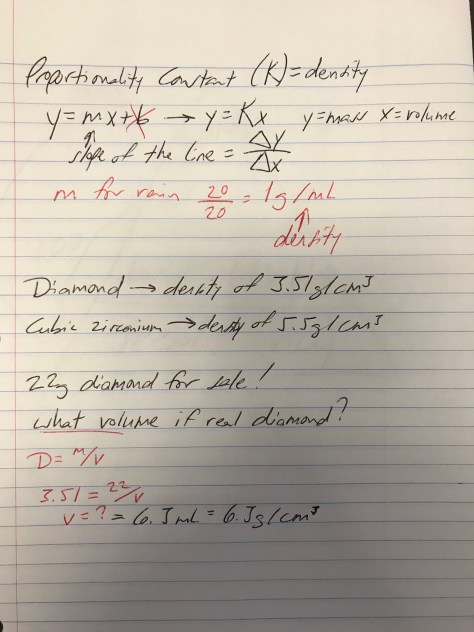 Proportionality Constant (K) = density
y = mx + b → y = Kx y = mass x = volume
slope of the line = Δy/Δx
m for rain 20/20 = 1g/mL
density
Diamond → density of 3.51g/cm³
Cubic zirconium → density of 5.5g/cm³
22g diamond for sale!
what volume if real diamond?
D = m/v
3.51 = 22/v
v = ? = 6.3mL = 6.3g/cm³